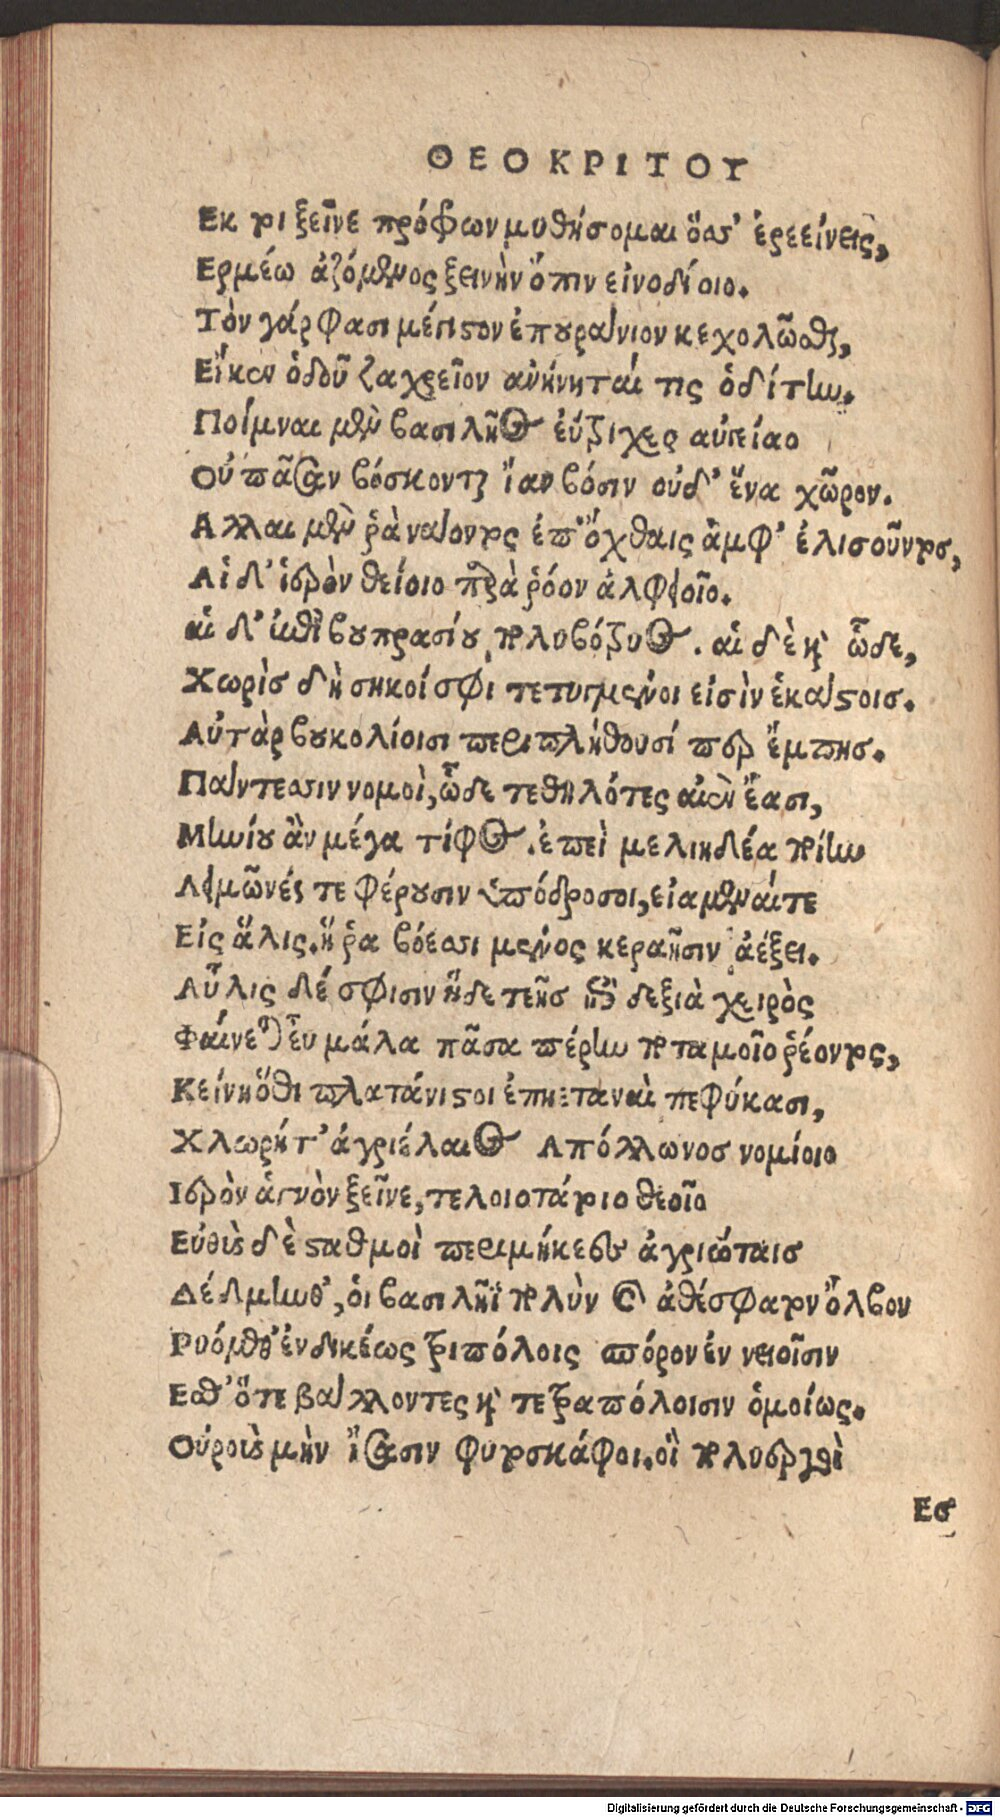 ΘΕΟΚΡΙΤΟΥ
Εκ τοι ξεῖνε πρόφρων μυθήσομαι ὅσσ' ἐρεείνεις,
Ερμέω ἁζόμενος ξεινὴν ὄπιν εἰνοδίοιο.
Τὸν γάρ φασι μέγιστον ἐπουράνιον κεχολῶσθαι,
Εἴκεν ὁδοῦ ζαχρεῖον ἀνήνηταί τις ὁδίτην.
Ποίμναι μὲν βασιλῆος ἐύτριχες αὐγείαο
Οὐ πᾶσαν βόσκονται ἴαν βόσιν οὐδ' ἕνα χῶρον.
Αλλαι μὲν ῥὰ νάοντος ἐπ' ὄχθαις ἀμφ' ἐλισοῦντος,
Αἱ δ' ἱερὸν θείοιο παρὰ ῥόον ἀλφειοῖο.
αἱ δ' ἐπὶ βουπρασίου πολυβότρυος. αἱ δὲ καὶ ὧδε,
Χωρὶσ δὴ σηκοί σφι τετυγμένοι εἰσὶν ἑκάστοισ.
Αὐτὰρ βουκολίοισι περιπλήθουσί περ ἔμπησ.
Πάντεσσιν νομοὶ, ὧδε τεθηλότες αἰὲν ἔασι,
Μηνίου ἂν μέγα τίφος. ἐπεὶ μελιηδέα ποίην
Λειμῶνές τε φέρουσιν ὑπόδροσοι, εἱαμεναίτε
Εἰς ἅλις. ἥ ῥα βόεσσι μένος κεραῆσιν ἀέξει.
Αὖλις δέ σφισιν ἥδε τεῆσ ἐπὶ δεξιὰ χειρὸς
Φαίνεται εὖ μάλα πᾶσα πέρην ποταμοῖο ῥέοντος,
Κείνη ὅθι πλατάνιστοι ἐπηεταναὶ πεφύκασι,
Χλωρήτ' ἀγριέλαιος Απόλλωνοσ νομίοιο
Ιερὸν ἁγνὸν ξεῖνε, τελοιοτάτοιο θεοῖο
Εὐθὺς δὲ σταθμοὶ περιμήκεες ἀγριώταισ
Δέδμηνθ', οἱ βασιλῆϊ πολὺν καὶ ἀθέσφατον ὄλβον
Ρυόμεθ' ἐνδικέως τριπόλοις σπόρον ἐν νειοῖσιν
Εσθ' ὅτε βάλλοντες καὶ τετραπόλοισιν ὁμοίως.
Οὐροὺς μὴν ἴσασιν φυτοσκάφοι. οἳ πολυεργοὶ
Εσ
Digitalisierung gefördert durch die Deutsche Forschungsgemeinschaft - DFG